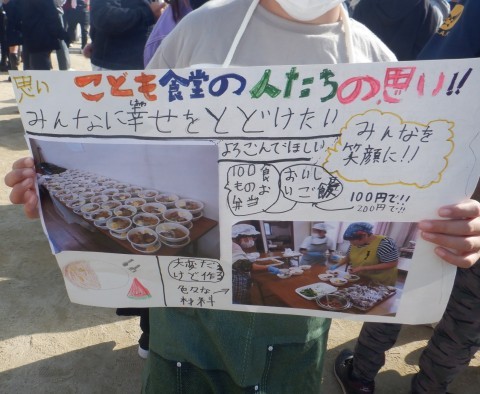 思い
こども食堂の人たちの思い!!
みんなに幸せをとどけたい
よろこんでほしい
みんなを
笑顔に!!
100食
ものお
弁当
おいし
いご飯
100円で!!
200円で!!
大変だ
けど作る
色々な→
材料